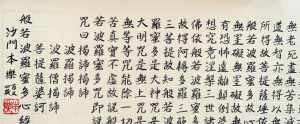 無老死盡無苦集滅
道無智亦無得以無
所得故菩提薩埵依
般若波羅蜜多故心
無罣礙無罣礙故無
有恐怖遠離顛倒夢
想究竟涅槃三世諸
佛依般若波羅蜜多
故得阿耨多羅三藐
三菩提故知般若波
羅蜜多是大神咒是
大明咒是無上咒是
無等等咒能除一切
苦真實不虛故說般
若波羅蜜多咒即說
咒曰揭諦揭諦
波羅揭諦
波羅僧揭諦
菩提薩婆訶
般若波羅蜜多心經
沙門本樂